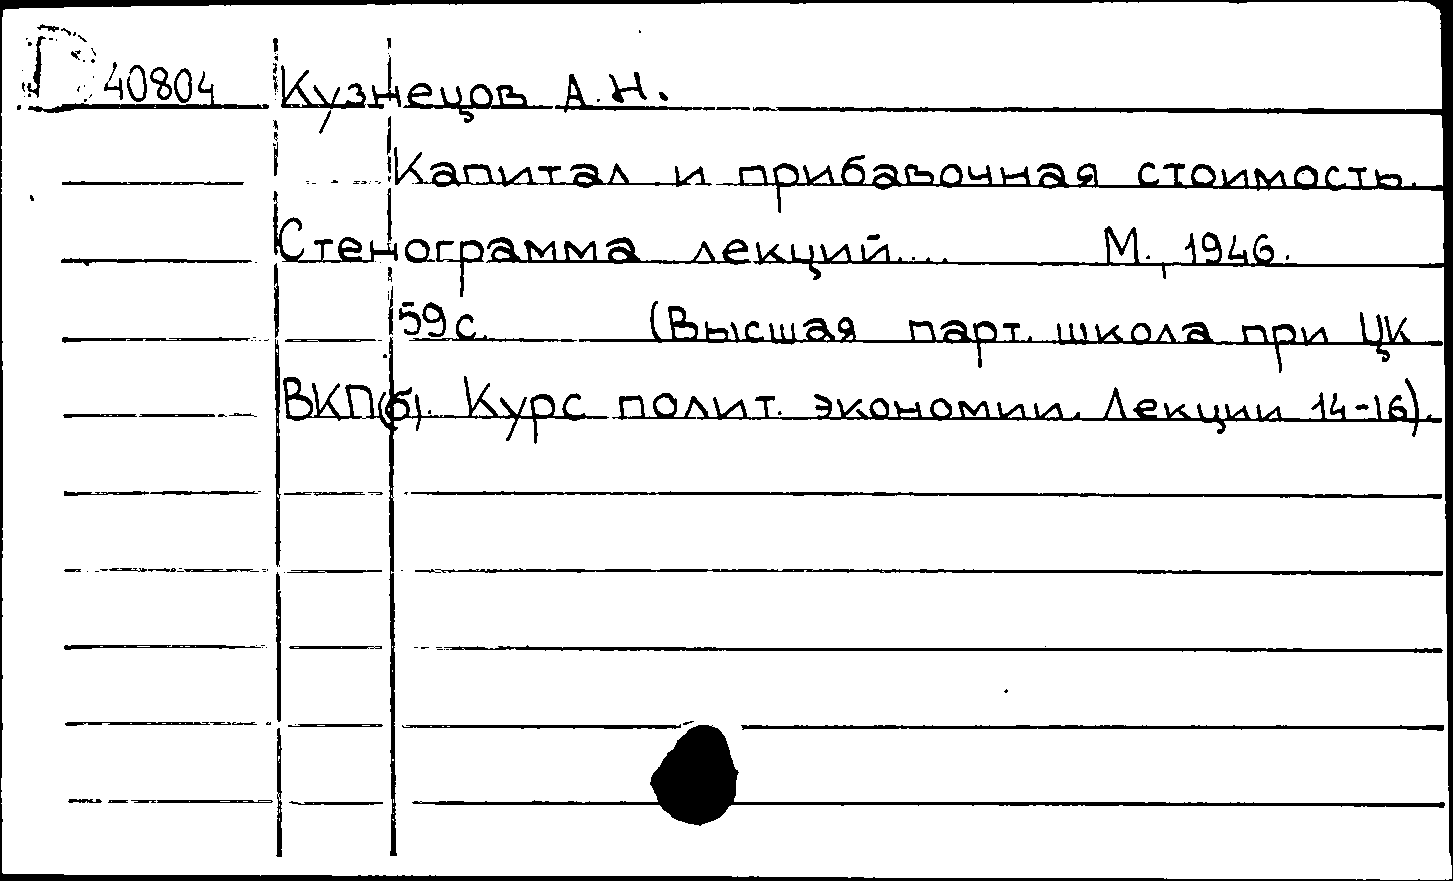 Г 40804 Кузнецов А.Н.
Капитал и прибавочная стоимость.
Стенограмма лекций.... М., 1946.
59с. (Высшая парт. школа при ЦК
ВКП(б). Курс полит. экономии. Лекции 14-16).